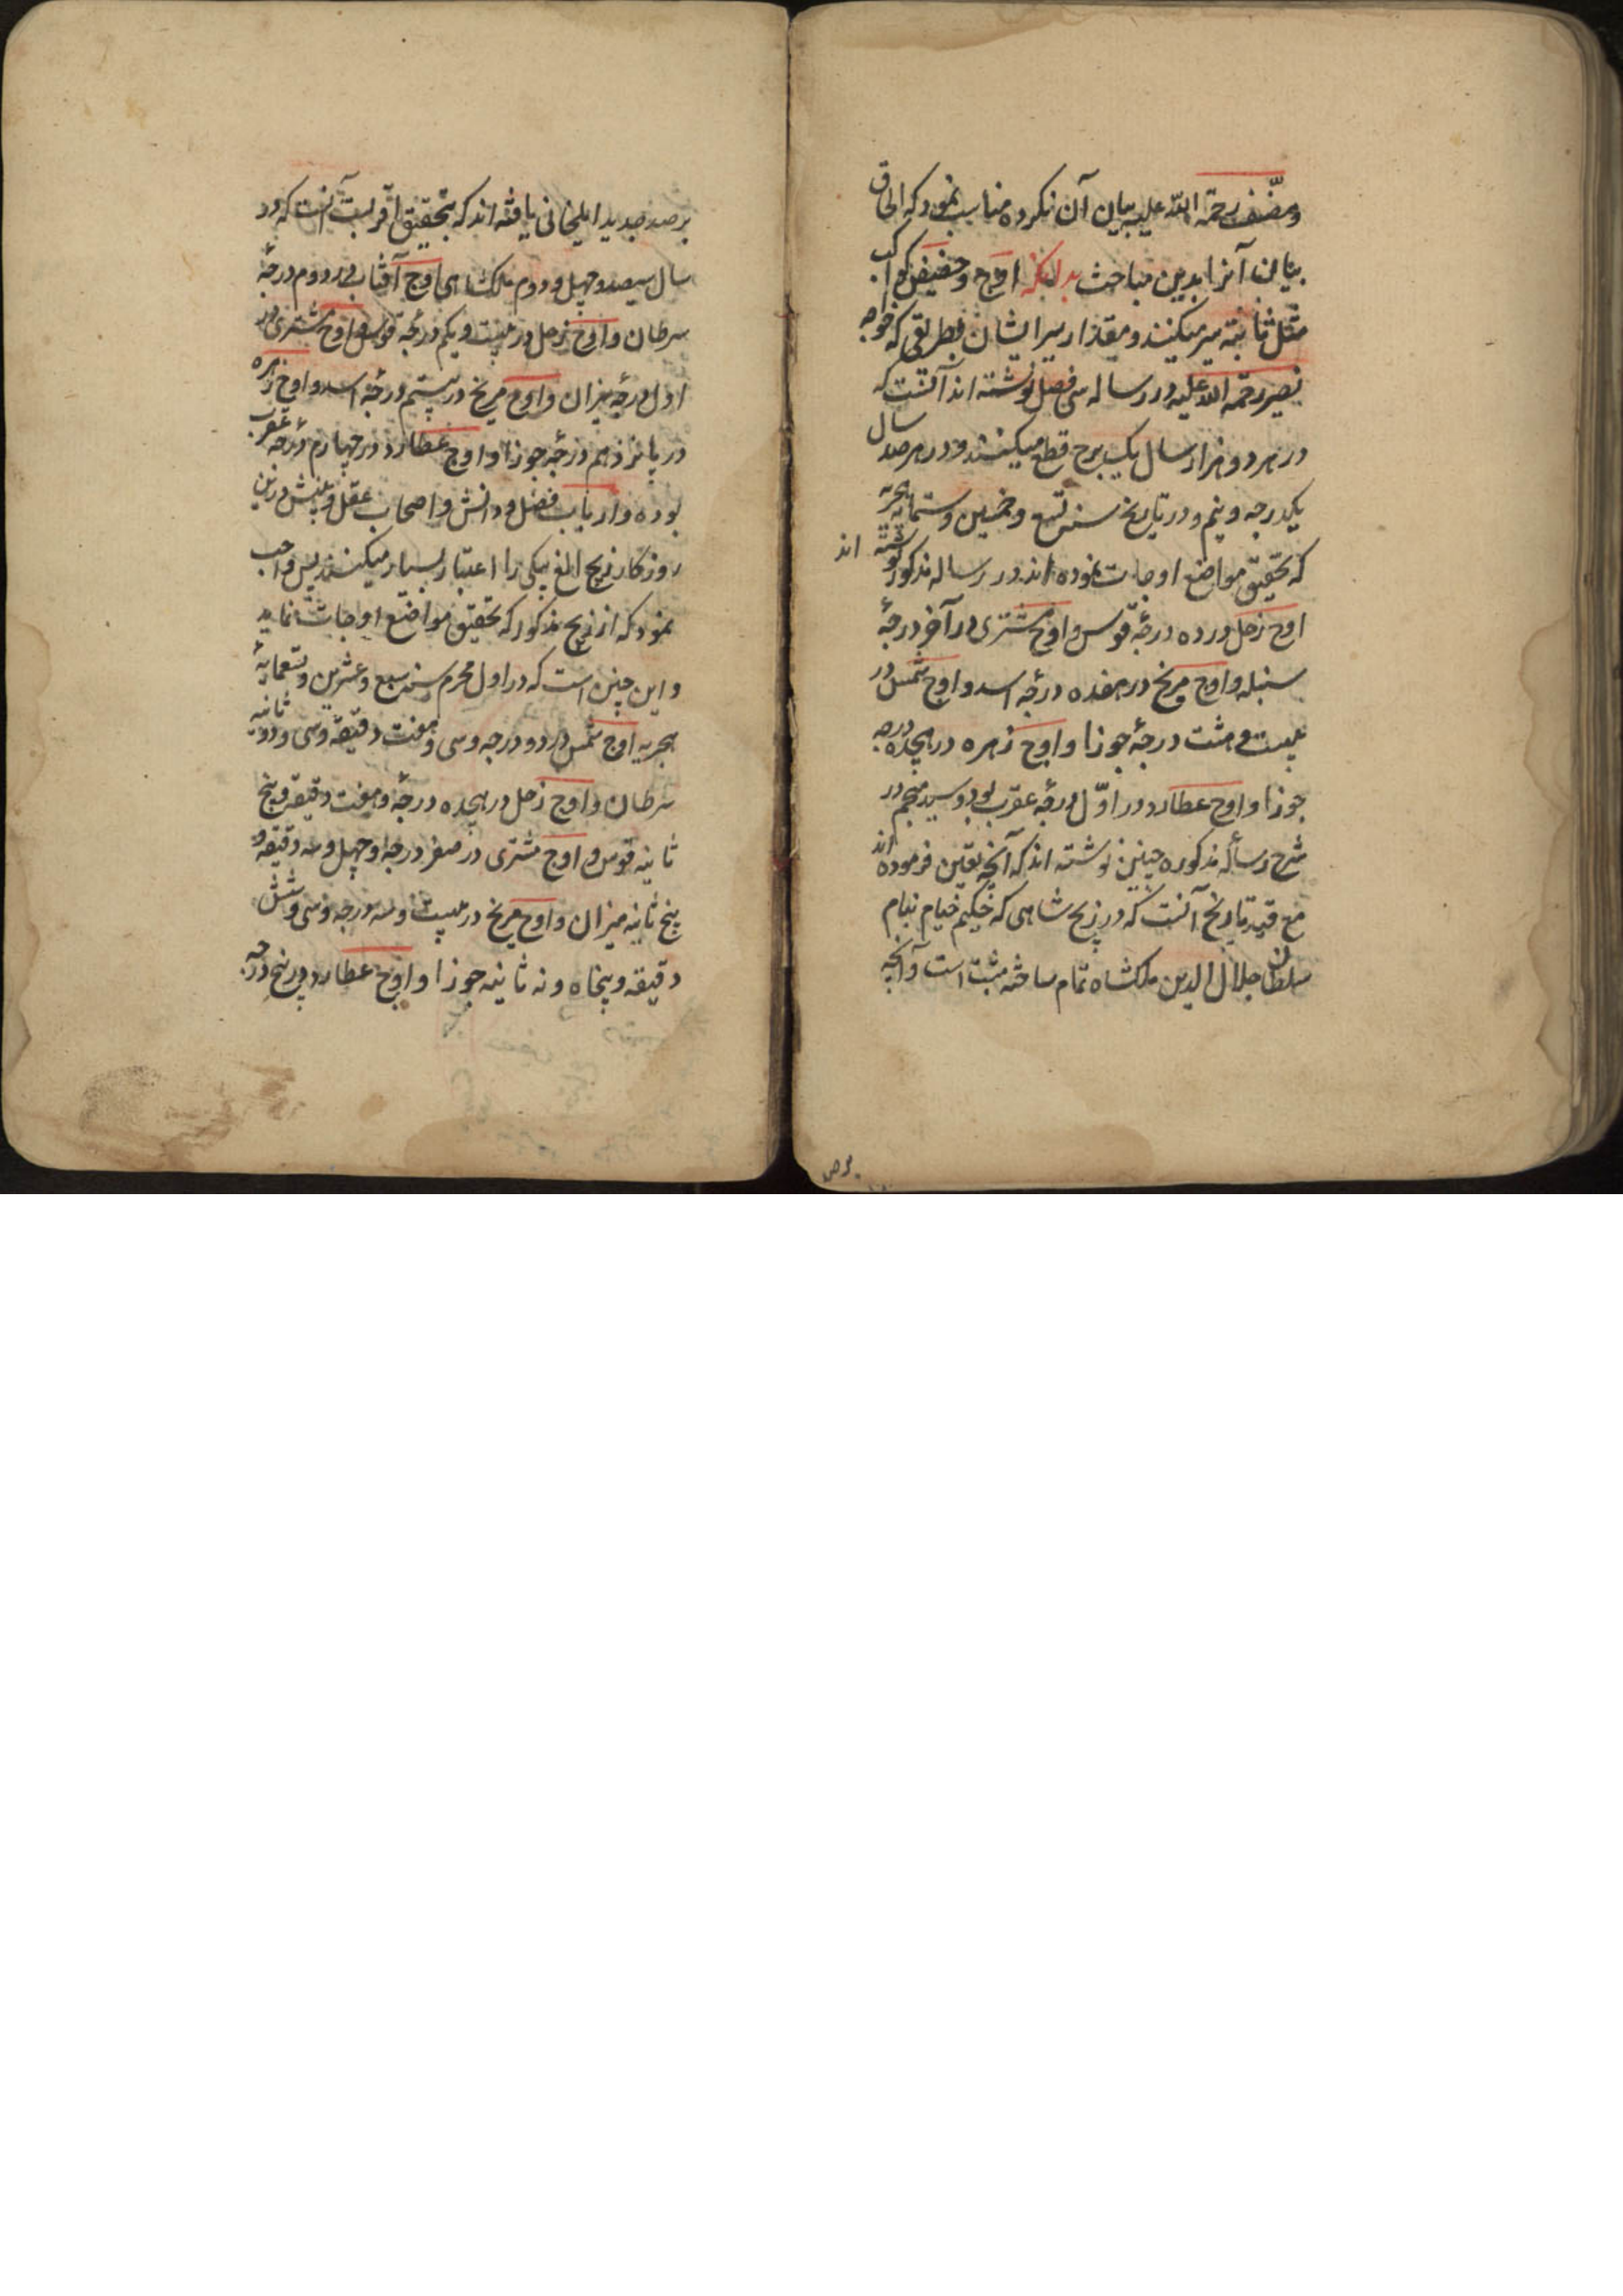 و مصنّف رحمة اللّه علیه بیان آن نکرده مناسب نمود که الحاق
بیان آنرا بدین مباحث بدانکه اوج و حضیض کواکب
مثل ثابته سیر میکنند و مقدار سیر ایشان بطریقی که خواجه
نصیر رحمة اللّه علیه در رساله سی فصل نوشته اند آنست که
در هر دو هزار سال یک برج قطع میکنند و در هر صد سال
یکدرجه و نیم و در تاریخ سنه تسع و خمسین و ستمایه هجریه
که تحقیق مواضع اوجات نموده اند در رساله مذکور نوشته اند
اوج زحل در ده درجهٔ قوس و اوج مشتری در آخر درجهٔ
سنبله و اوج مریخ در هفده درجهٔ اسد و اوج شمس در
بیست و هشت درجهٔ جوزا و اوج زهره در هجده درجه
جوزا و اوج عطارد در اوّل درجهٔ عقرب بود و سید منجم در
شرح رسالهٔ مذکوره چنین نوشته اند که آنچه تعین فرموده اند
مع قید تاریخ آنست که در زیج شاهی که حکیم خیام بنام
سلطان جلال الدین ملکشاه تمام ساخته مثبت است و آنچه
برصد جدید ایلخانی یافته اند که بتحقیق اقربست آنست که در
سال سیصد و چهل و دوم ملکشاهی اوج آفتاب در دوم درجهٔ
سرطان و اوج زحل در بیست و یکم درجه قوس و اوج مشتری در
اول درجه میزان و اوج مریخ در بیستم درجهٔ اسد و اوج زهره
در پانزدهم درجه جوزا و اوج عطارد در چهارم درجه عقرب
بوده و ارباب فضل و دانش و اصحاب عقل و بینش درین
روزگار زیج الغ بیکی را اعتبار بسیار میکنند پس واجب
نمود که از زیج مذکور که تحقیق مواضع اوجات نماید
و این چنین است که در اول محرم سنه سبع و عشرین و تسعمایهٔ
هجریه اوج شمس در دو درجه و سی و هفت دقیقه و سی و دو ثانیه
سرطان و اوج زحل در هجده درجهٔ و هفت دقیقه و پنج
ثانیه قوس و اوج مشتری در صفر درجه و چهل و سه دقیقه و
پنج ثانیه میزان و اوج مریخ در بیست و سه درجه و سی و شش
دقیقه و پنجاه و نه ثانیه جوزا و اوج عطارد در پنج درجه